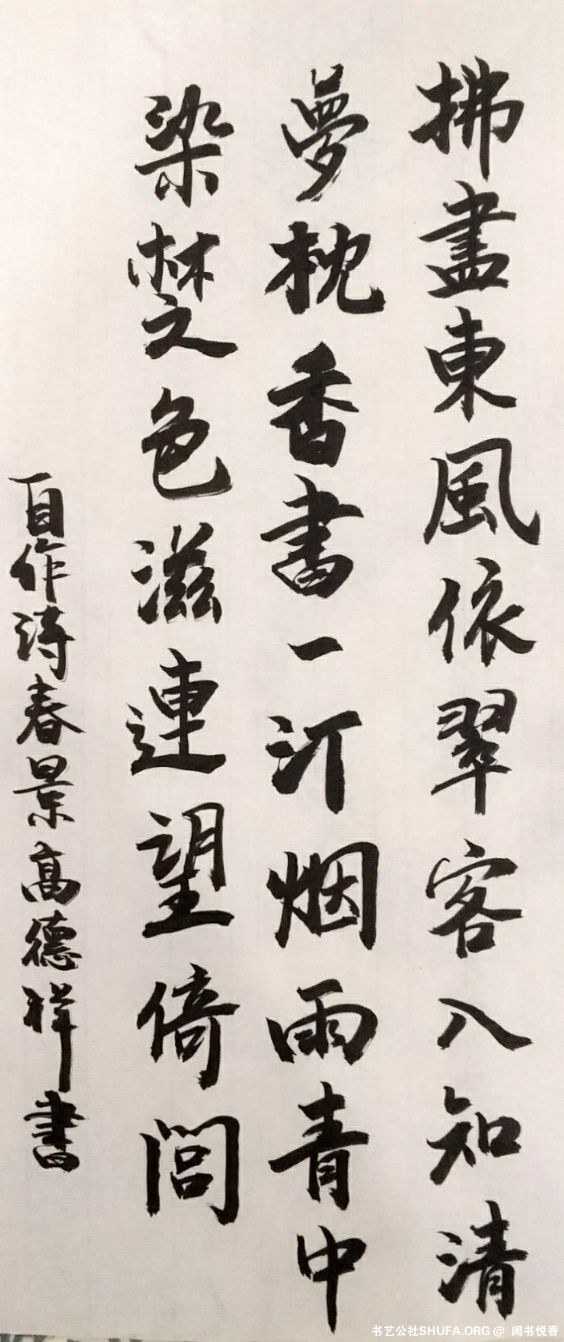 拂盡東風依翠客入知清
夢枕香書一汀烟雨青中
染楚色滋連望倚閭
自作诗春景高德祥書
书艺公社SHUFA.ORG @ 阅书悦香